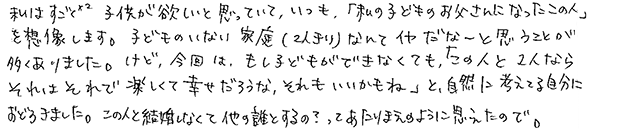 私はすごく×2 子供が欲しいと思っていて、いつも、「私の子どものお父さんになったこの人」
を想像します。子どものいない家庭(2人きり)なんてイヤだな〜と思うことが
多くありました。けど、今回は、もし子どもができなくても、「この人と2人なら
それはそれで楽しくて幸せだろうな、それもいいかもね」と、自然に考えてる自分に
おどろきました。この人と結婚しなくて他の誰とするの?ってあたりまえのように思えたので。